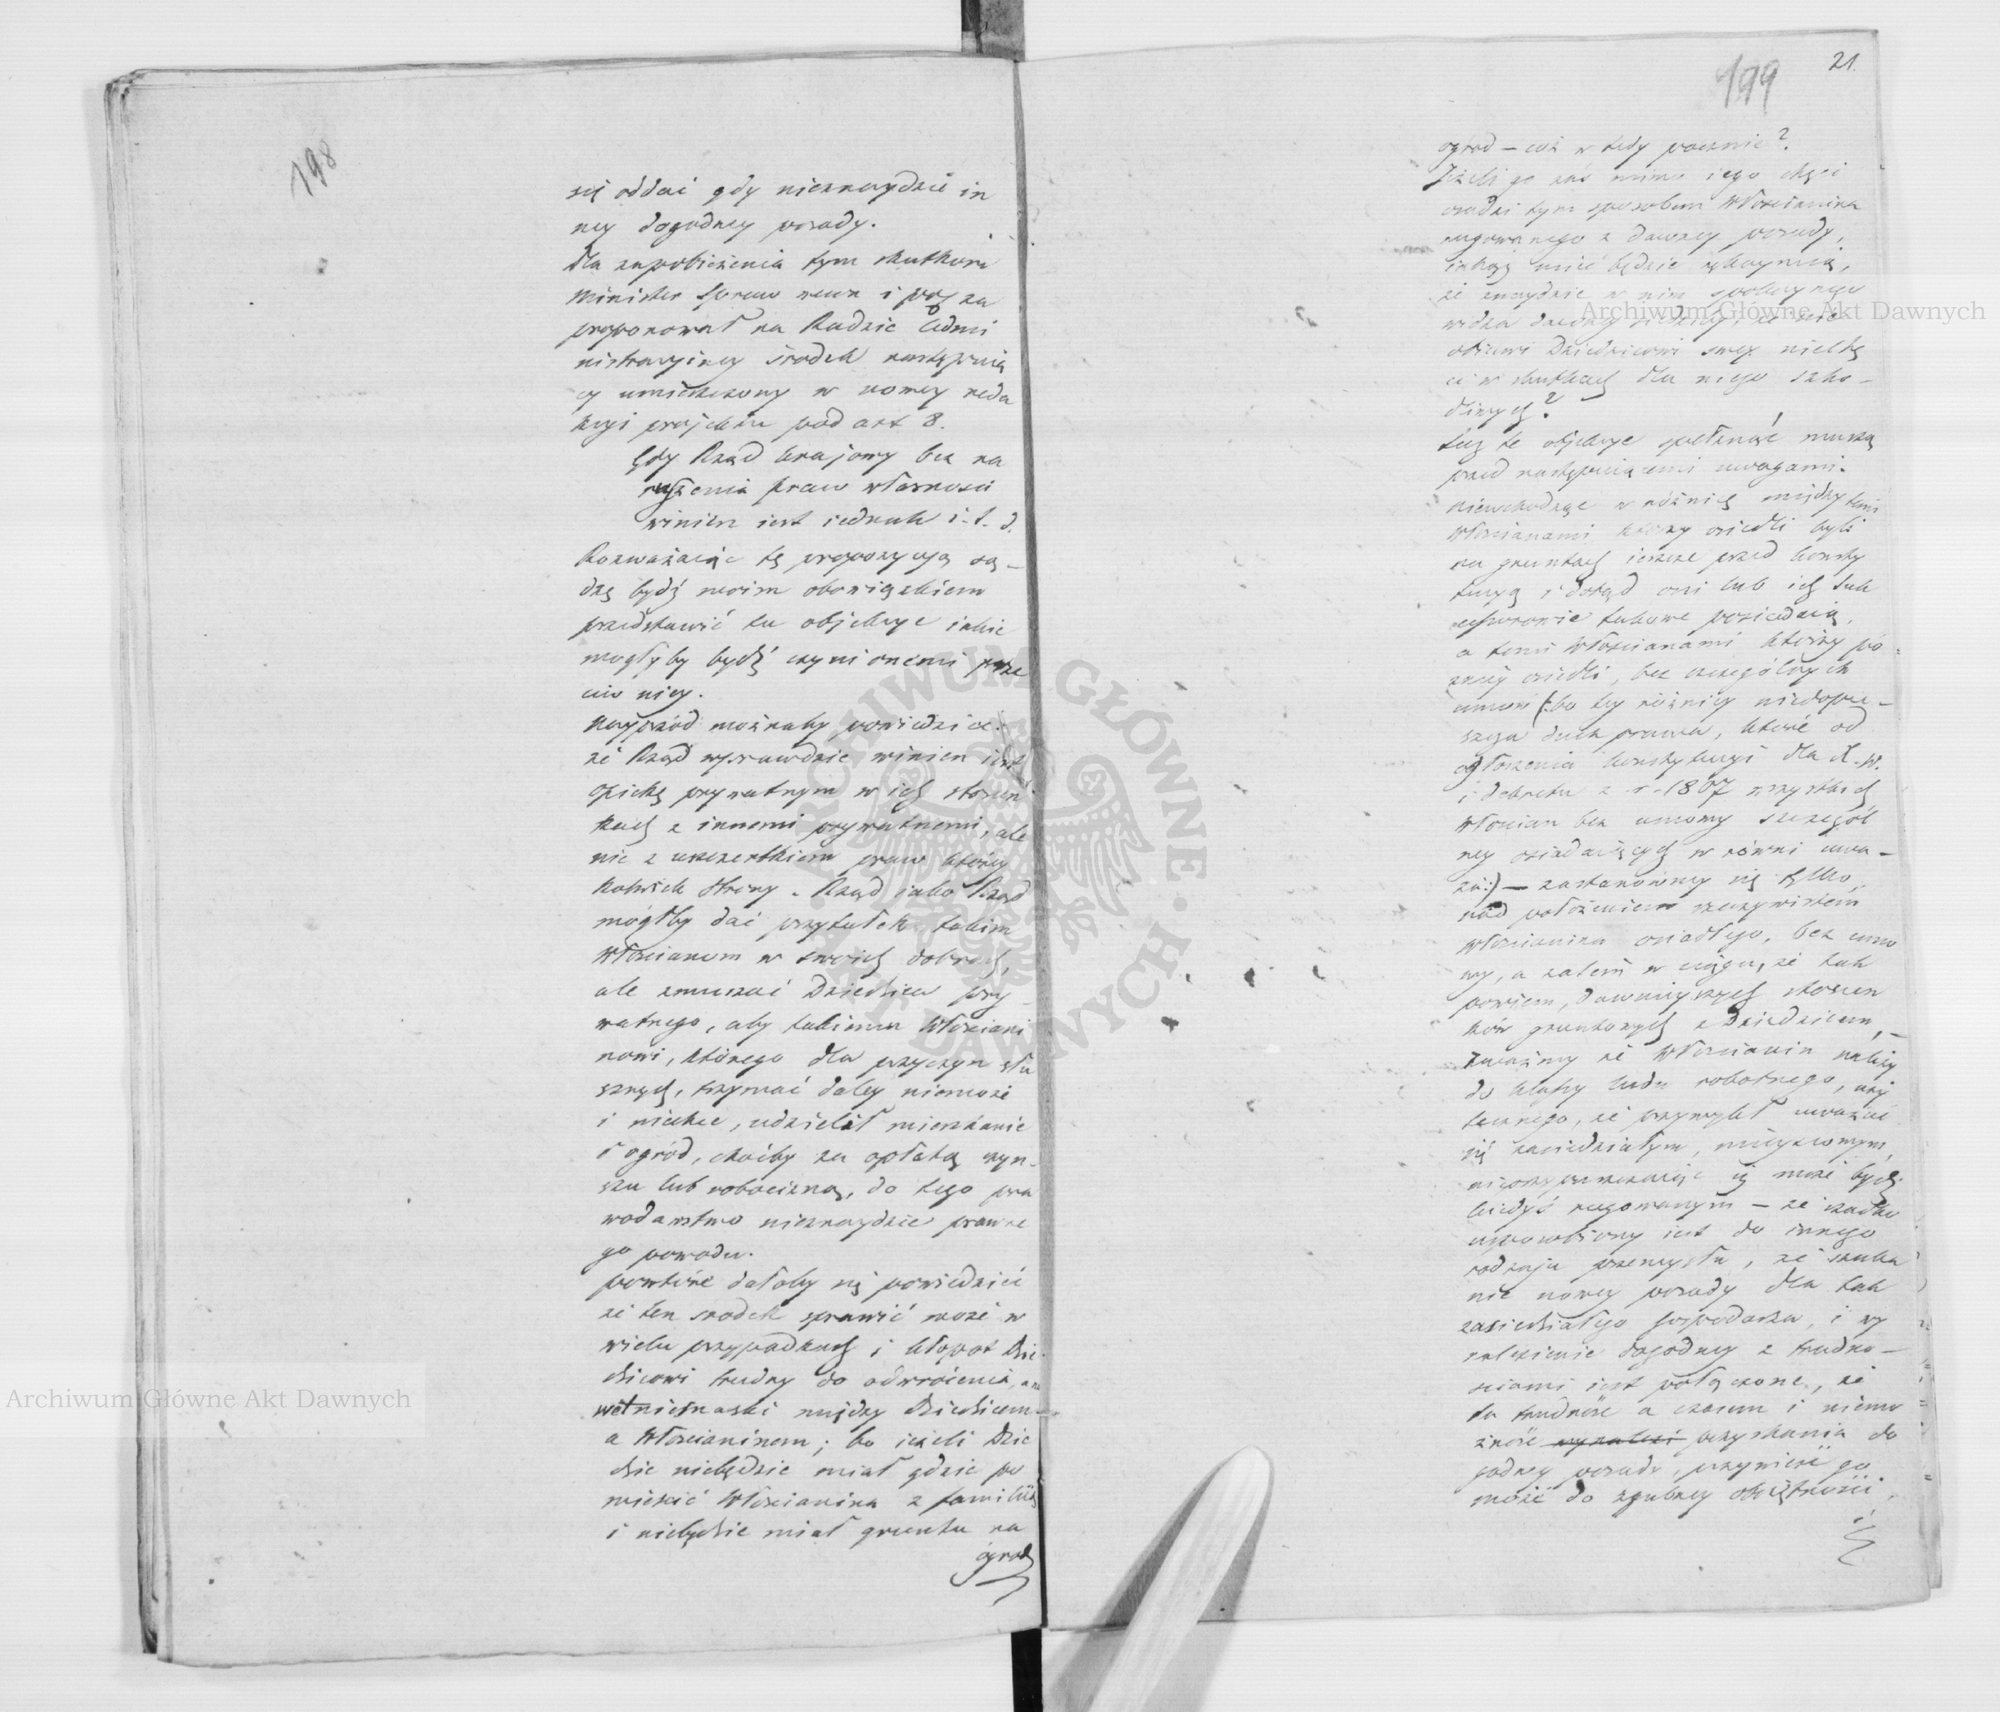 198
się oddać gdy nieznaydzie in
ney dogodney posady.
dla zapobieżenia tym skutkom
Minister Spraw wewn i pol za
proponował na Radzie Admi
nistracyiney środek następuią
cy umieszczony w nowey reda
kcyi projektu pod art 8.
Gdy Rząd krajowy bez na
ruszenia praw własności
winien iest iednak i. t. d.
Rozważaiąc tę propozycyą są-
dzę bydź moim obowiązkiem
przedstawić tu objekcye iakie
mogłyby bydź czynionemi prze
ciw niey.
Nayprzód możnaby powiedzieć:
że Rząd wprawdzie winien iest
opiekę prywatnym w ich stosun
kach z innemi prywatnemi, ale
nie z uszczerbkiem praw którey
kolwiek strony. Rząd iako Rząd
mógłby dać przytułek takim
Włościanom w swoich dobrach,
ale zmuszać Dziedzica pry-
watnego, aby takiemu Włościani
nowi, którego dla przyczyn słu
sznych, trzymać daley niemoże
i niechce, udzielił mieszkanie
i ogród, choćby za opłatą czyn-
szu lub robocizną, do tego pra
wodawstwo nieznaydzie prawne
go powodu.
powtóre dałoby się powiedzieć
że ten środek sprawić może w
wielu przypadkach i kłopot Dzie-
dzicowi trudny do odwrócenia, a na
wet niesnaski między Dziedzicem
a Włościaninem; bo ieżeli Dzie
dzic niebędzie miał gdzie po
mieścić Włościanina z familią
i niebędzie miał gruntu na
ogród
199
21.
ogród – cóż w tedy pocznie?
Jeżeli go zaś mimo iego chęci
osadzi tym sposobem Włościanina
rugowanego z dawney posady,
iakąż mieć będzie rękoymią,
że znaydzie w nim spokoynego
widza dawney siedziby, i że nie
obiawi Dziedzicowi swey niechę
ci w skutkach dla niego szko-
dliwych?
Lecz te objekcye spełznąć muszą
przed następuiącemi uwagami.
Niewchodząc w różnicę między temi
Włościanami którzy osiedli byli
na gruntach ieszcze przed konsty
tucyą i dotąd oni lub ich suk
cessorowie takowe posiadaią,
a temi Włościanami którzy pó-
źniey osiedli, bez szczególnych
umów (: bo tey różnicy niedopu-
szcza duch prawa, które od
ogłoszenia konstytucyi dla X. W.
i dekretu z r. 1807 wszystkich
Włościan bez umowy szczegól
ney osiadaiących w równi uwa-
ża:) – zastanówmy się tylko
nad położeniem rzeczywistém
Włościanina osiadłego, bez umo
wy, a zatem w ciągu, że tak
powiem, dawnieyszych stosun
ków gruntowych z Dziedzicem, –
Zważmy że Włościanin należy
do klassy ludu robotnego, uży
tecznego, że przywykł uważać
się zasiedziałym, mieyscowym,
nieprzypuszczaiąc iż może bydź
kiedyś rugowanym – że rzadko
usposobiony iest do innego
rodzaju przemysłu, że szuka
nie nowey posady dla tak
zasiedziałego gospodarza, i wy
nalezienie dogodney z trudno-
ściami iest połączone, że
ta trudność a czasem i niemo
żność wynaleźć pozyskania do
godney posady, przywieść go
może do zgubney obojętności,
i
Archiwum Główne Akt Dawnych
Archiwum Główne Akt Dawnych
ARCHIWUM GŁÓWNE AKT DAWNYCH